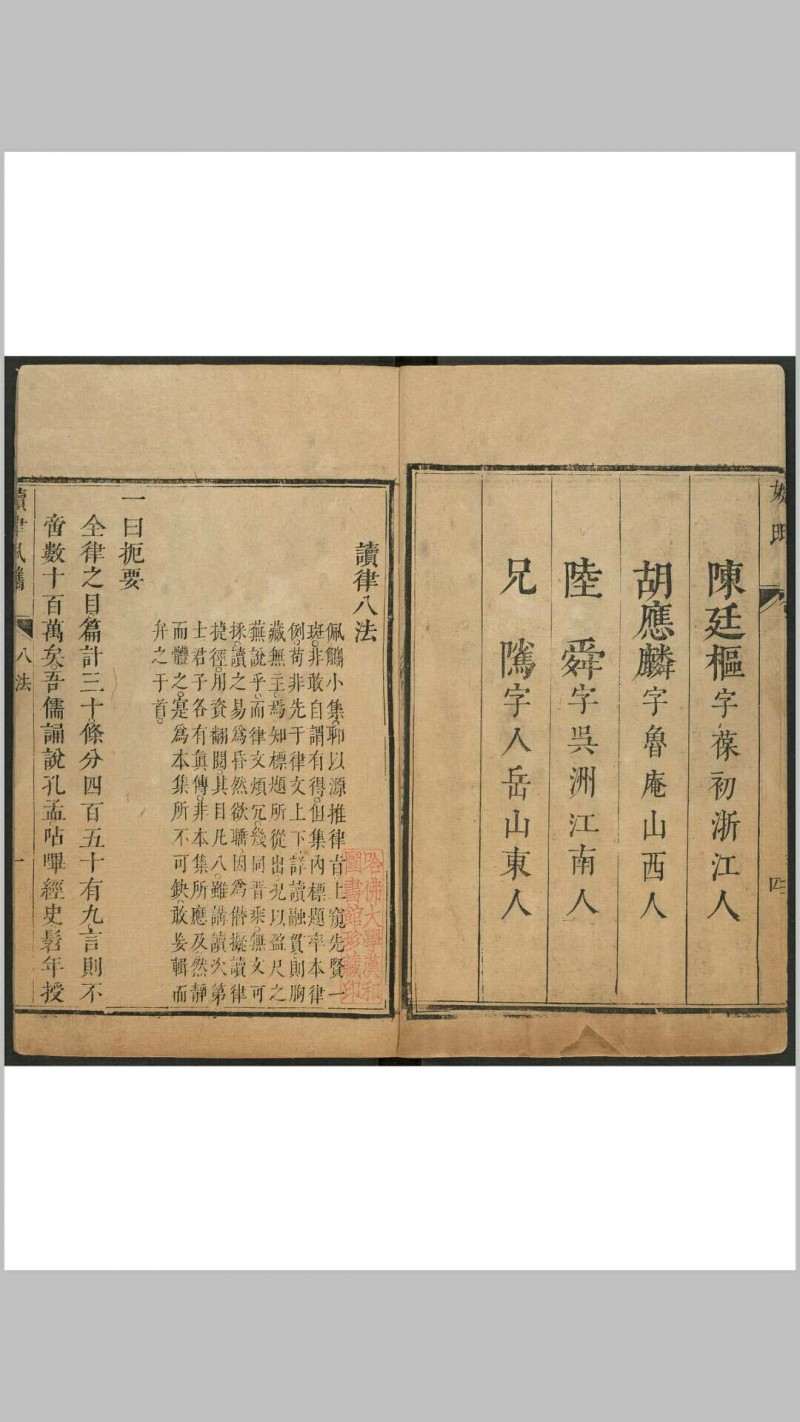 姓氏
陳廷樞字葆初浙江人
胡應麟字魯庵山西人
陸舜字吳洲江南人
兄隲字入岳山東人
四
讀律八法
佩觿小集聊以源推律首上窺先賢一
斑非敢自謂有得但集內標題卒本律
例苟非先于律文上下詳讀融貫則胸
藏無主焉知標題所從出況以盈尺之
蕪說乎而律文煩冗幾同晋乘無文可
採讀之易為昏然欲聽因為僭擬讀律
捷徑用資翻閱其目凡八雖講讀次第
士君子各有眞傳非本集所應及然靜
而體之寔為本集所不可缺敢妄輯而
弁之于首
一曰扼要
全律之目篇計三十條分四百五十有九言則不
啻數十百萬矣吾儒誦說孔孟呫嗶經史髫年授
讀律佩觿
八法
一
哈佛大學漢和
圖書館珍藏印